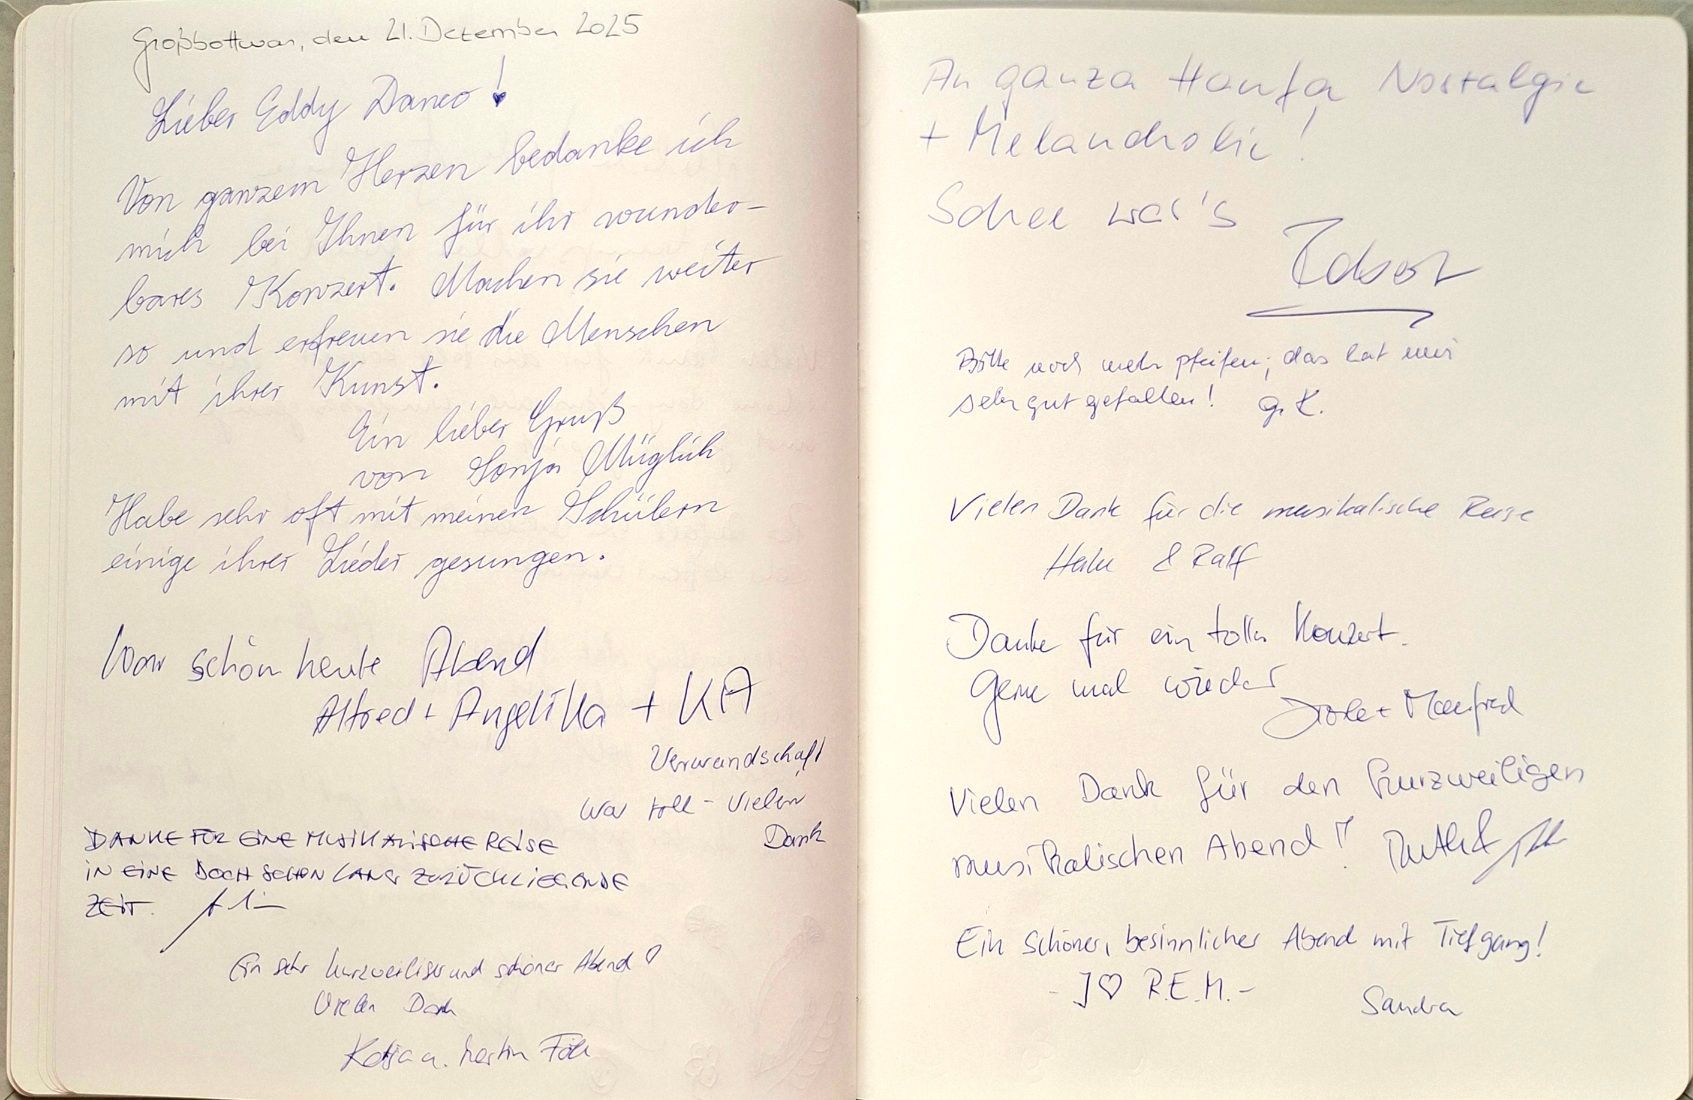 Großbottwar, den 21. Dezember 2025
Lieber Eddy Danco!
Von ganzem Herzen bedanke ich
mich bei Ihnen für ihr wunder-
bares Konzert. Machen sie weiter
so und erfreuen sie die Menschen
mit ihrer Kunst.
Ein lieber Gruß
von Sonja Müglich
Habe sehr oft mit meinen Schülern
einige ihrer Lieder gesungen.
War schön heute Abend
Alfred + Angelika + KA
Verwandschaft
War toll - Vielen
Dank
DANKE FÜR EINE MUSIKALISCHE REISE
IN EINE DOCH SCHON LANG ZURÜCKLIEGENDE
ZEIT.
Ein sehr kurzweiliger und schöner Abend ♡
Vielen Dank
Katja u. Martin
An ganza Haufa Nostalgie
+ Melancholie!
Schee war's
Bitte noch mehr pfeifen, das hat mir
sehr gut gefallen! G. K.
Vielen Dank für die musikalische Reise
& Ralf
Danke für ein tolles Konzert.
Gerne mal wieder
+ Manfred
Vielen Dank für den kurzweiligen
musikalischen Abend! Ruth &
Ein schöner, besinnlicher Abend mit Tiefgang!
- I ♡ R.E.M. -
Sandra